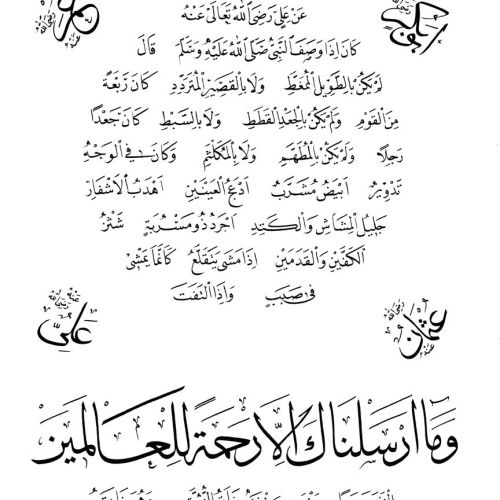 ابو بكر رضي الله عنه
عمر رضي الله عنه
عن علي رضي الله تعالى عنه
كان إذا وصف النبي صلى الله عليه وسلم قال
لم يكن بالطويل الممغط ولا بالقصير المتردد كان ربعة
من القوم ولم يكن بالجعد القطط ولا بالسبط كان جعدا
رجلا ولم يكن بالمطهم ولا بالمكلثم وكان في الوجه
تدوير ابيض مشرب ادعج العينين اهدب الاشفار
جليل المشاش والكتد اجرد ذو مسربة شثن
الكفين والقدمين اذا مشى يتقلع كأنما يمشي
في صبب واذا التفت
عثمان رضي الله عنه
علي رضي الله عنه
وما ارسلناك الا رحمة للعالمين